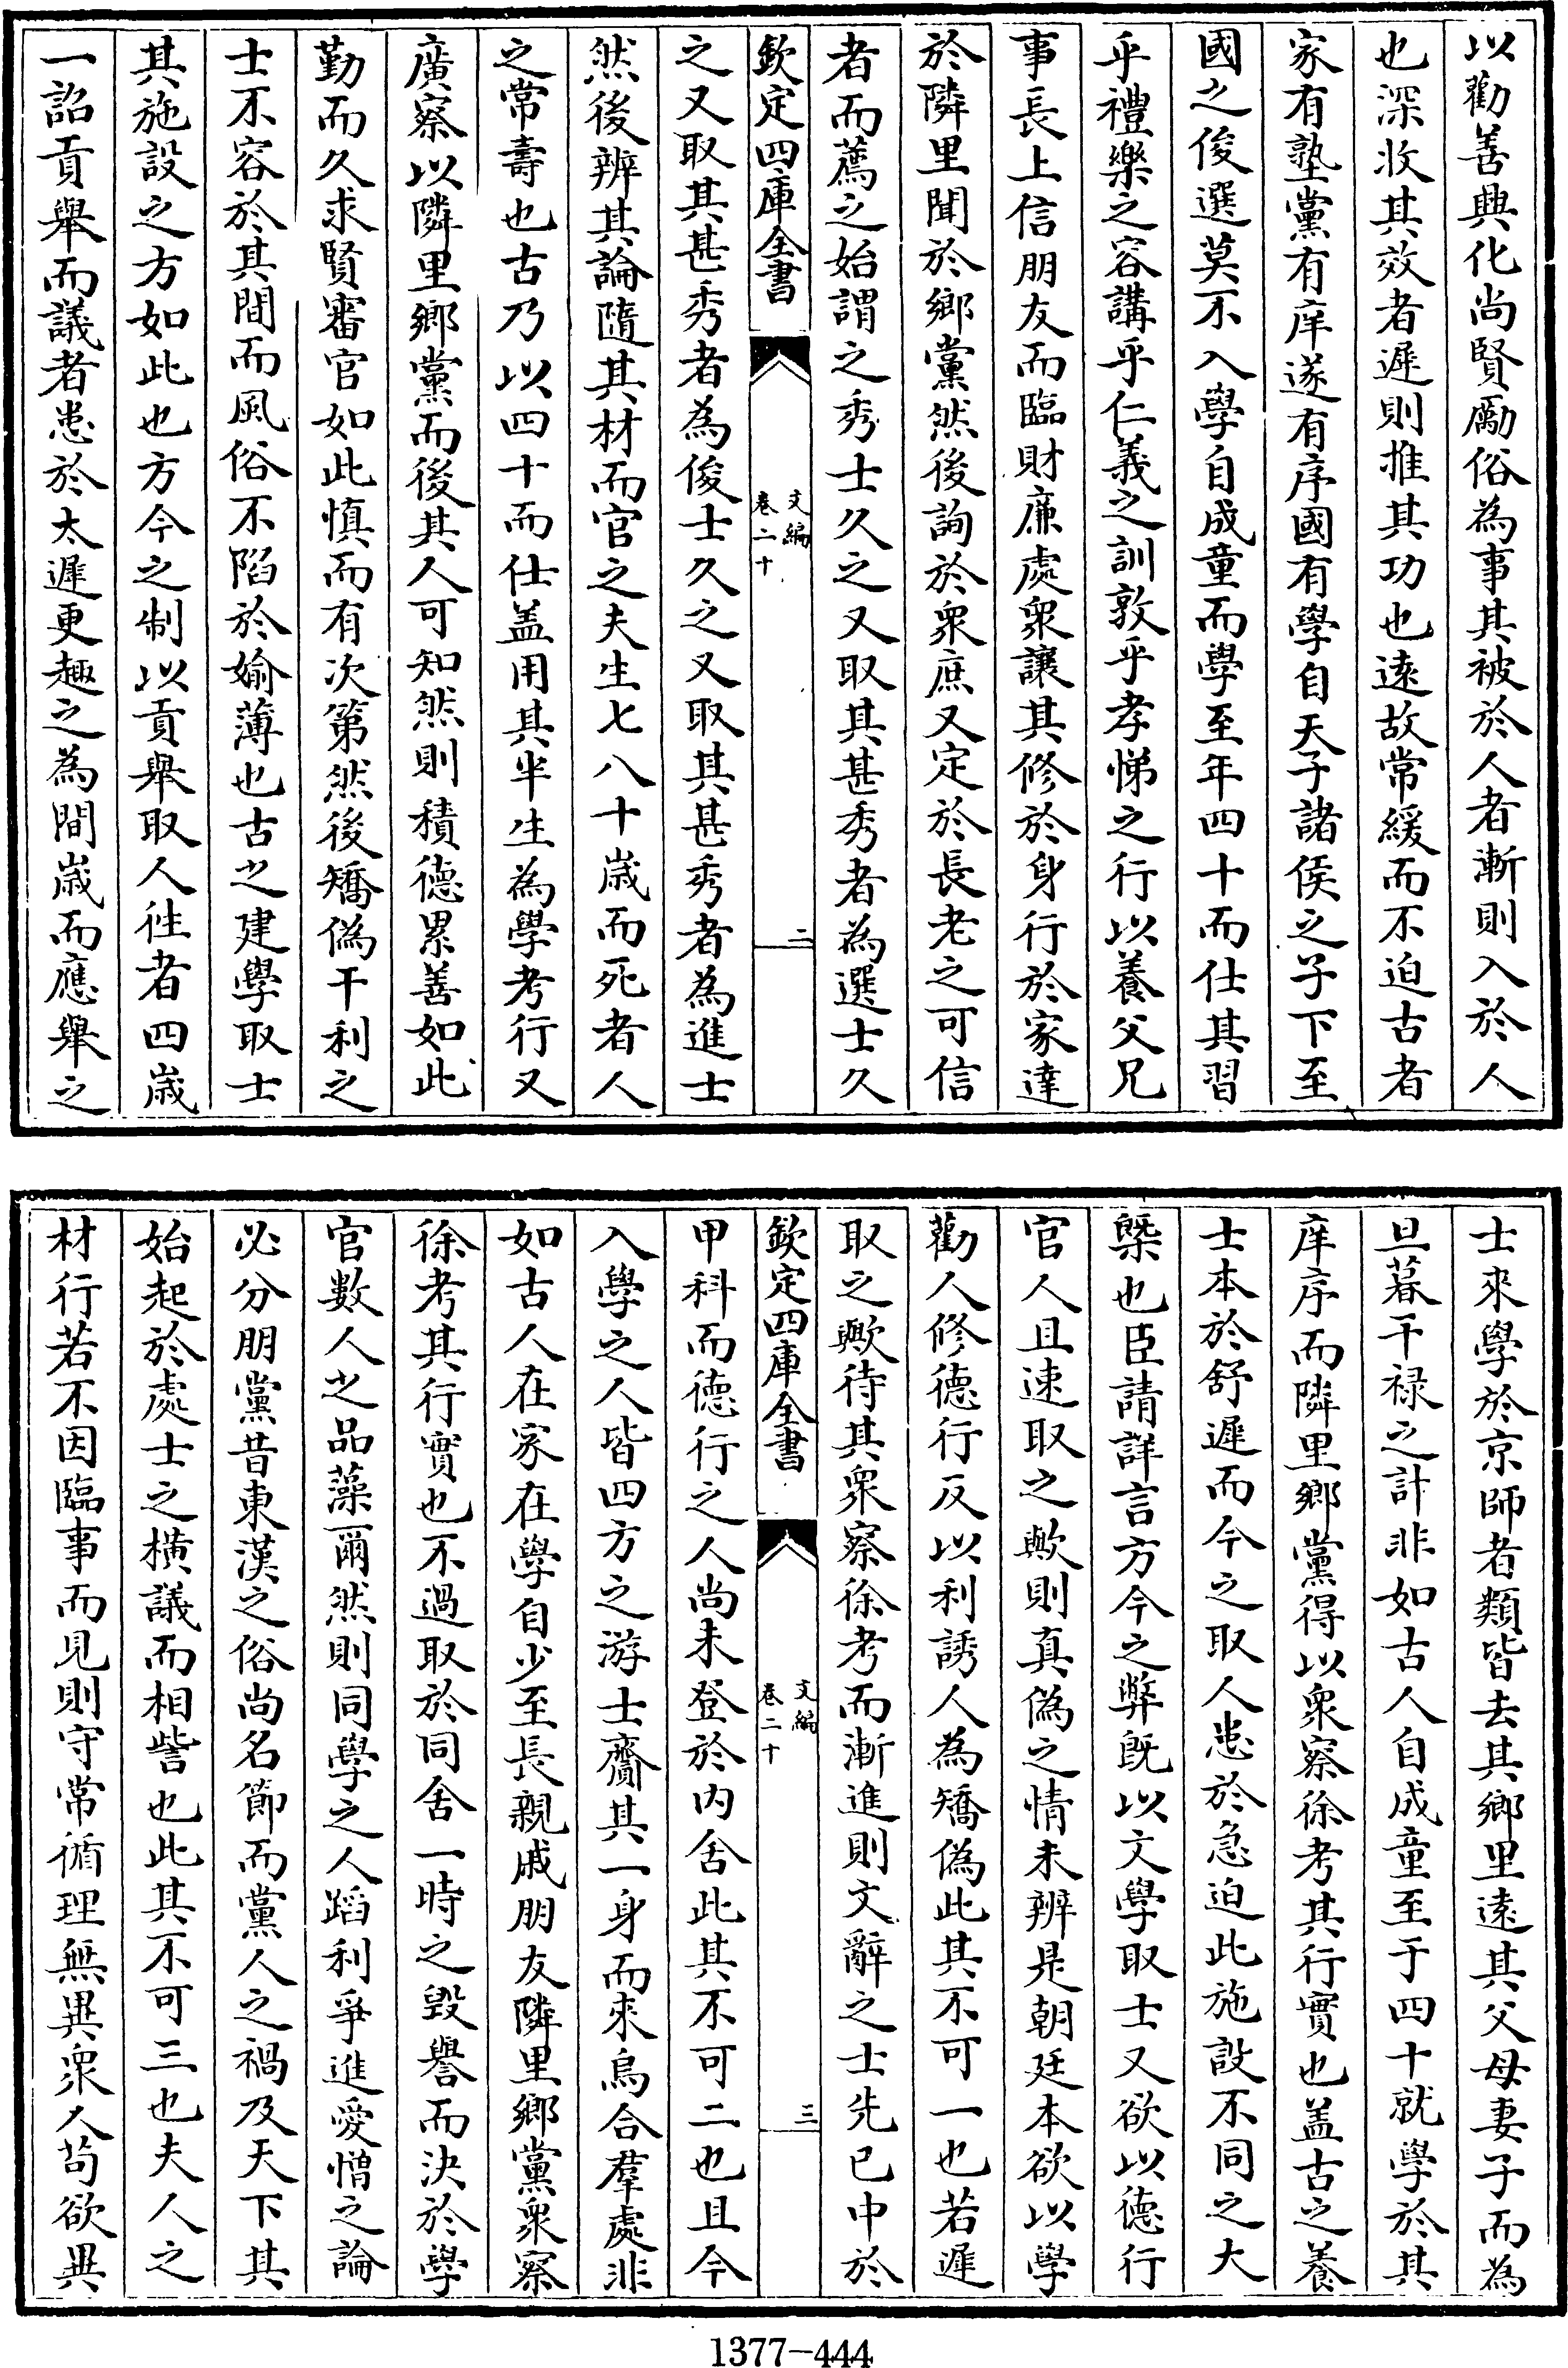 以勸善興化尚賢勵俗為事其被於人者漸則入於人
也深收其效者遲則推其功也遠故常緩而不迫古者
家有塾黨有庠遂有序國有學自天子諸侯之子下至
國之俊選莫不入學自成童而學至年四十而仕其習
乎禮樂之容講乎仁義之訓敦乎孝悌之行以養父兄
事長上信朋友而臨財廉處衆讓其修於身行於家達
於隣里聞於鄉黨然後詢於衆庶又定於長老之可信
者而薦之始謂之秀士久之又取其甚秀者為選士久
欽定四庫全書
文編
卷二十
二
之又取其甚秀者為俊士久之又取其甚秀者為進士
然後辨其論隨其材而官之夫生七八十歲而死者人
之常壽也古乃以四十而仕盖用其半生為學考行又
廣察以隣里鄉黨而後其人可知然則積德累善如此
勤而久求賢審官如此慎而有次第然後矯偽干利之
士不容於其間而風俗不陷於媮薄也古之建學取士
其施設之方如此也方今之制以貢舉取人徃者四歲
一詔貢舉而議者患於太遲更趣之為間歲而應舉之
士來學於京師者類皆去其鄉里遠其父母妻子而為
旦暮干祿之計非如古人自成童至于四十就學於其
庠序而隣里鄉黨得以衆察徐考其行實也盖古之養
士本於舒遲而今之取人患於急迫此施設不同之大
槩也臣請詳言方今之弊既以文學取士又欲以德行
官人且速取之歟則真偽之情未辨是朝廷本欲以學
勸人修德行反以利誘人為矯偽此其不可一也若遲
取之歟待其衆察徐考而漸進則文辭之士先已中於
欽定四庫全書
文編
卷二十
三
甲科而德行之人尚未登於内舍此其不可二也且今
入學之人皆四方之游士齎其一身而來烏合羣處非
如古人在家在學自少至長親戚朋友隣里鄉黨衆察
徐考其行實也不過取於同舍一時之毀譽而決於學
官數人之品藻爾然則同學之人蹈利爭進愛憎之論
必分朋黨昔東漢之俗尚名節而黨人之禍及天下其
始起於處士之橫議而相訾也此其不可三也夫人之
材行若不因臨事而見則守常循理無異衆人苟欲異
1377-444